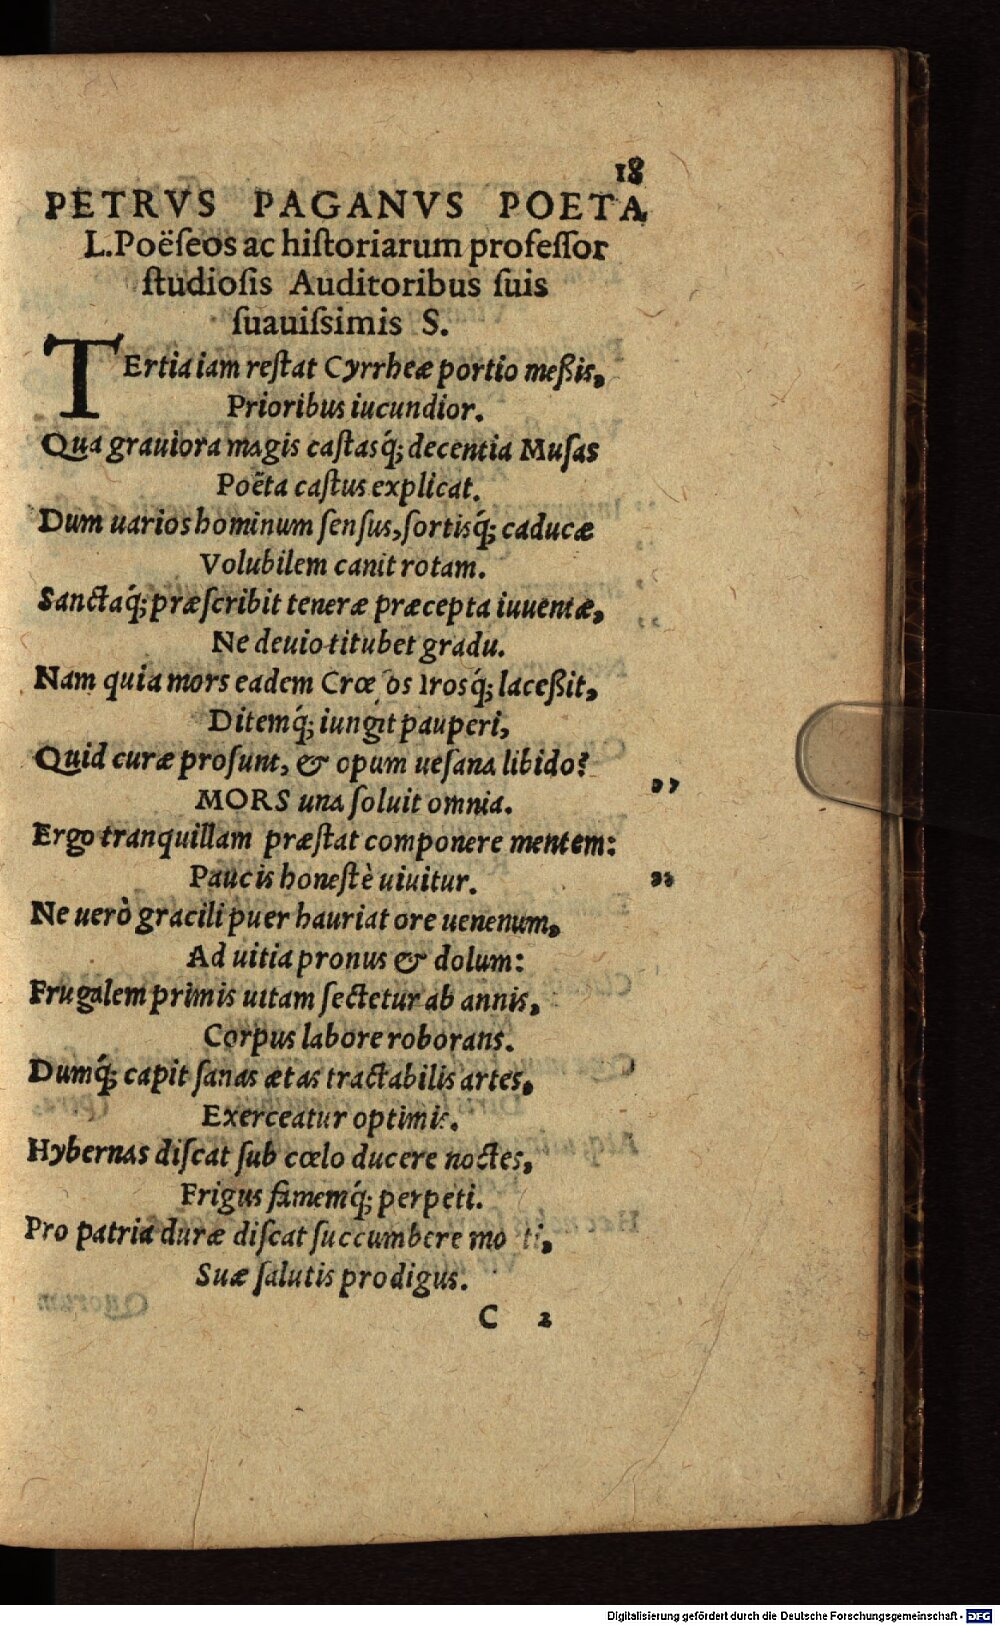 18
PETRVS PAGANVS POETA
L. Poëſeos ac hiſtoriarum profeſſor
ſtudioſis Auditoribus ſuis
ſuauiſsimis S.
TErtia iam reſtat Cyrrheæ portio meßis,
Prioribus iucundior.
Qua grauiora magis caſtasq́; decentia Muſas
Poëta caſtus explicat.
Dum uarios hominum ſenſus, ſortisq́; caducæ
Volubilem canit rotam.
Sanctaq́; præſcribit teneræ præcepta iuuentæ,
Ne deuio titubet gradu.
Nam quia mors eadem Crœ os Irosq́; laceßit,
Ditemq́; iungit pauperi,
Quid curæ proſunt, & opum ueſana libido?
MORS una ſoluit omnia. ”
Ergo tranquillam præſtat componere mentem:
Paucis honeſtè uiuitur. ”
Ne uerò gracili puer hauriat ore uenenum,
Ad uitia pronus & dolum:
Frugalem primis uitam ſectetur ab annis,
Corpus labore roborans.
Dumq́; capit ſanas ætas tractabilis artes,
Exerceatur optimis.
Hybernas diſcat ſub cœlo ducere noctes,
Frigus famemq́; perpeti.
Pro patria duræ diſcat ſuccumbere mo ti,
Suæ ſalutis prodigus.
C 2
Digitalisierung gefördert durch die Deutsche Forschungsgemeinschaft - DFG